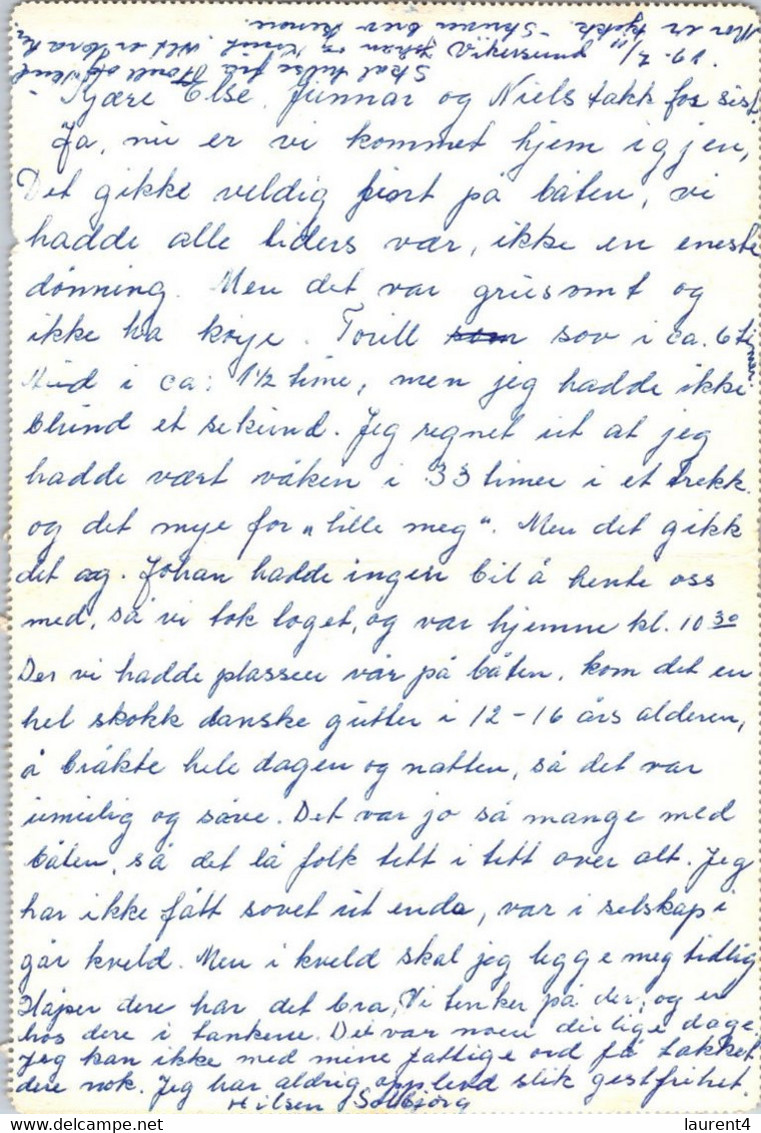 Kjære Else, Gunnar og Niels takk for sist.
Ja, nu er vi kommet hjem igjen,
Det gikke veldig fiort på båten, vi
hadde alle tiders vær, ikke en eneste
dønning. Men det var grusomt og
ikke ha køye. Torill sov i ca. 6 timer.
i ca: 1½ time, men jeg hadde ikke
blund et sekund. Jeg regnet ut at jeg
hadde vært våken i 33 timer i et trekk.
og det mye for „lille meg". Men det gikk
det og. Johan hadde ingen bil å hente oss
med, så vi tok toget, og var hjemme kl. 10 30
Der vi hadde plassen vår på båten, kom det en
hel skokk danske gutter i 12-16 års alderen,
å bråkte hele dagen og natten, så det var
umulig og sove. Det var jo så mange med
båten, så det lå folk tett i tett over alt. Jeg
har ikke fått sovet ut enda, var i selskap i
går kveld. Men i kveld skal jeg legge meg tidlig
Håper dere har det bra, Vi tenker på der, og er
hos dere i tankene. Det var noen deilige dage.
Jeg kan ikke med mine fattige ord få takket
dere nok. Jeg har aldrig opplevd slik gestfrihet.
Hilsen Solbjørg
Skal hilse fra
Johan og Knut. Alt er bra
Skriver brev senere.
Mor er kjekk.